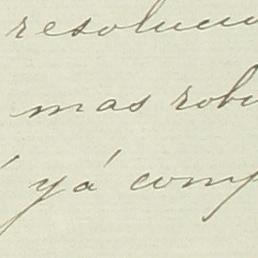 resolucio
mas robu
yá comp